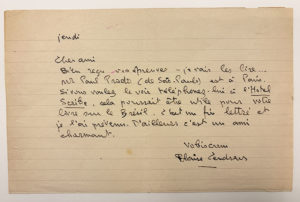 jeudi
Cher ami
Bien reçu vos épreuves - je vais les lire...
Paul Prado (de São-Paulo) est à Paris.
si vous voulez le voir téléphonez-lui à l'Hôtel
Scribe, cela pourrait être utile pour votre
livre sur le Brésil. c'est un fin lettré et
je l'ai prévenu. D'ailleurs c'est un ami
charmant.
Blaise Cendrars